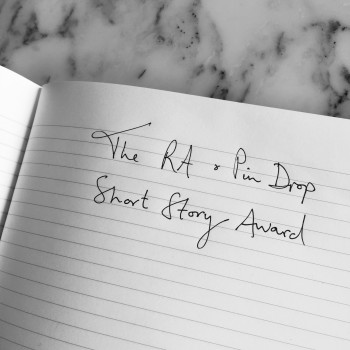 The RA x Pin Drop
Short Story Award